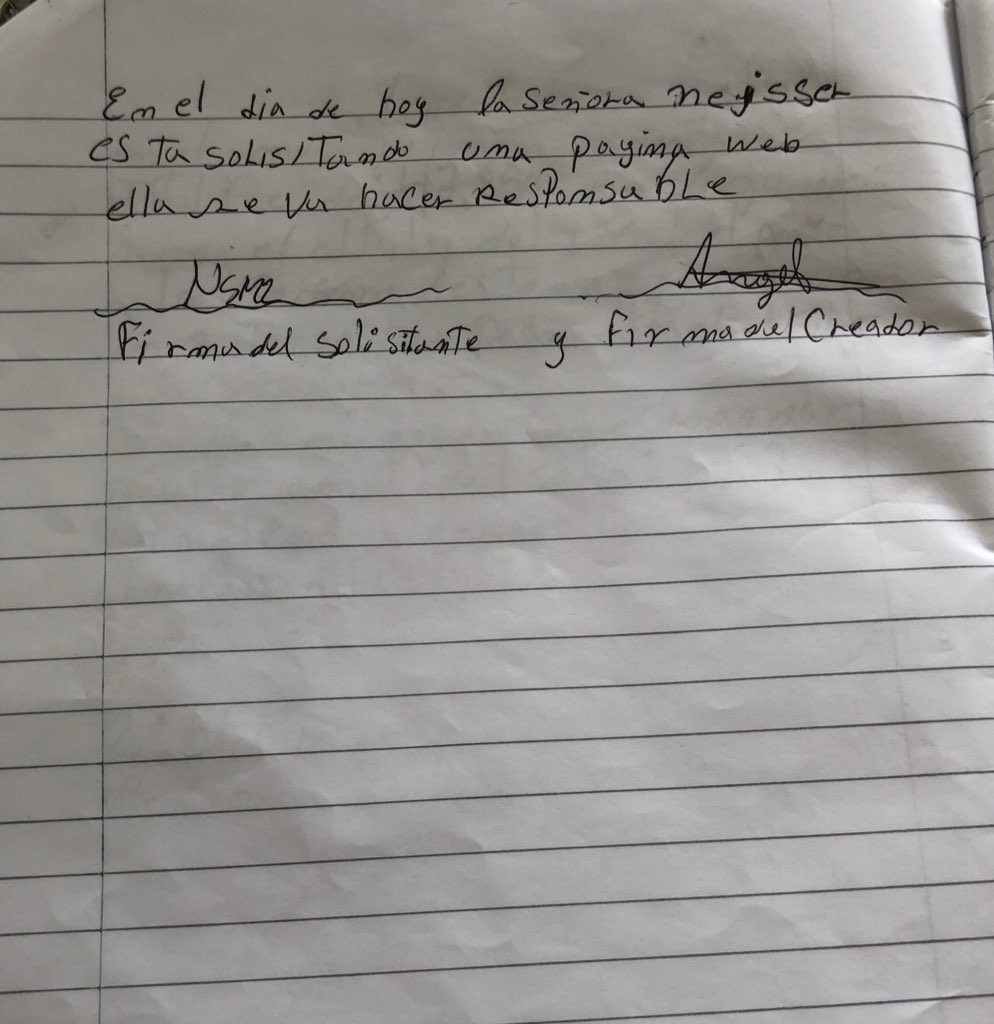 En el dia de hoy la señora nejisser
esta solisitando una pagina web
ella se va hacer Responsable
NSMR Angel
Firma del solisitante y firma del Creador